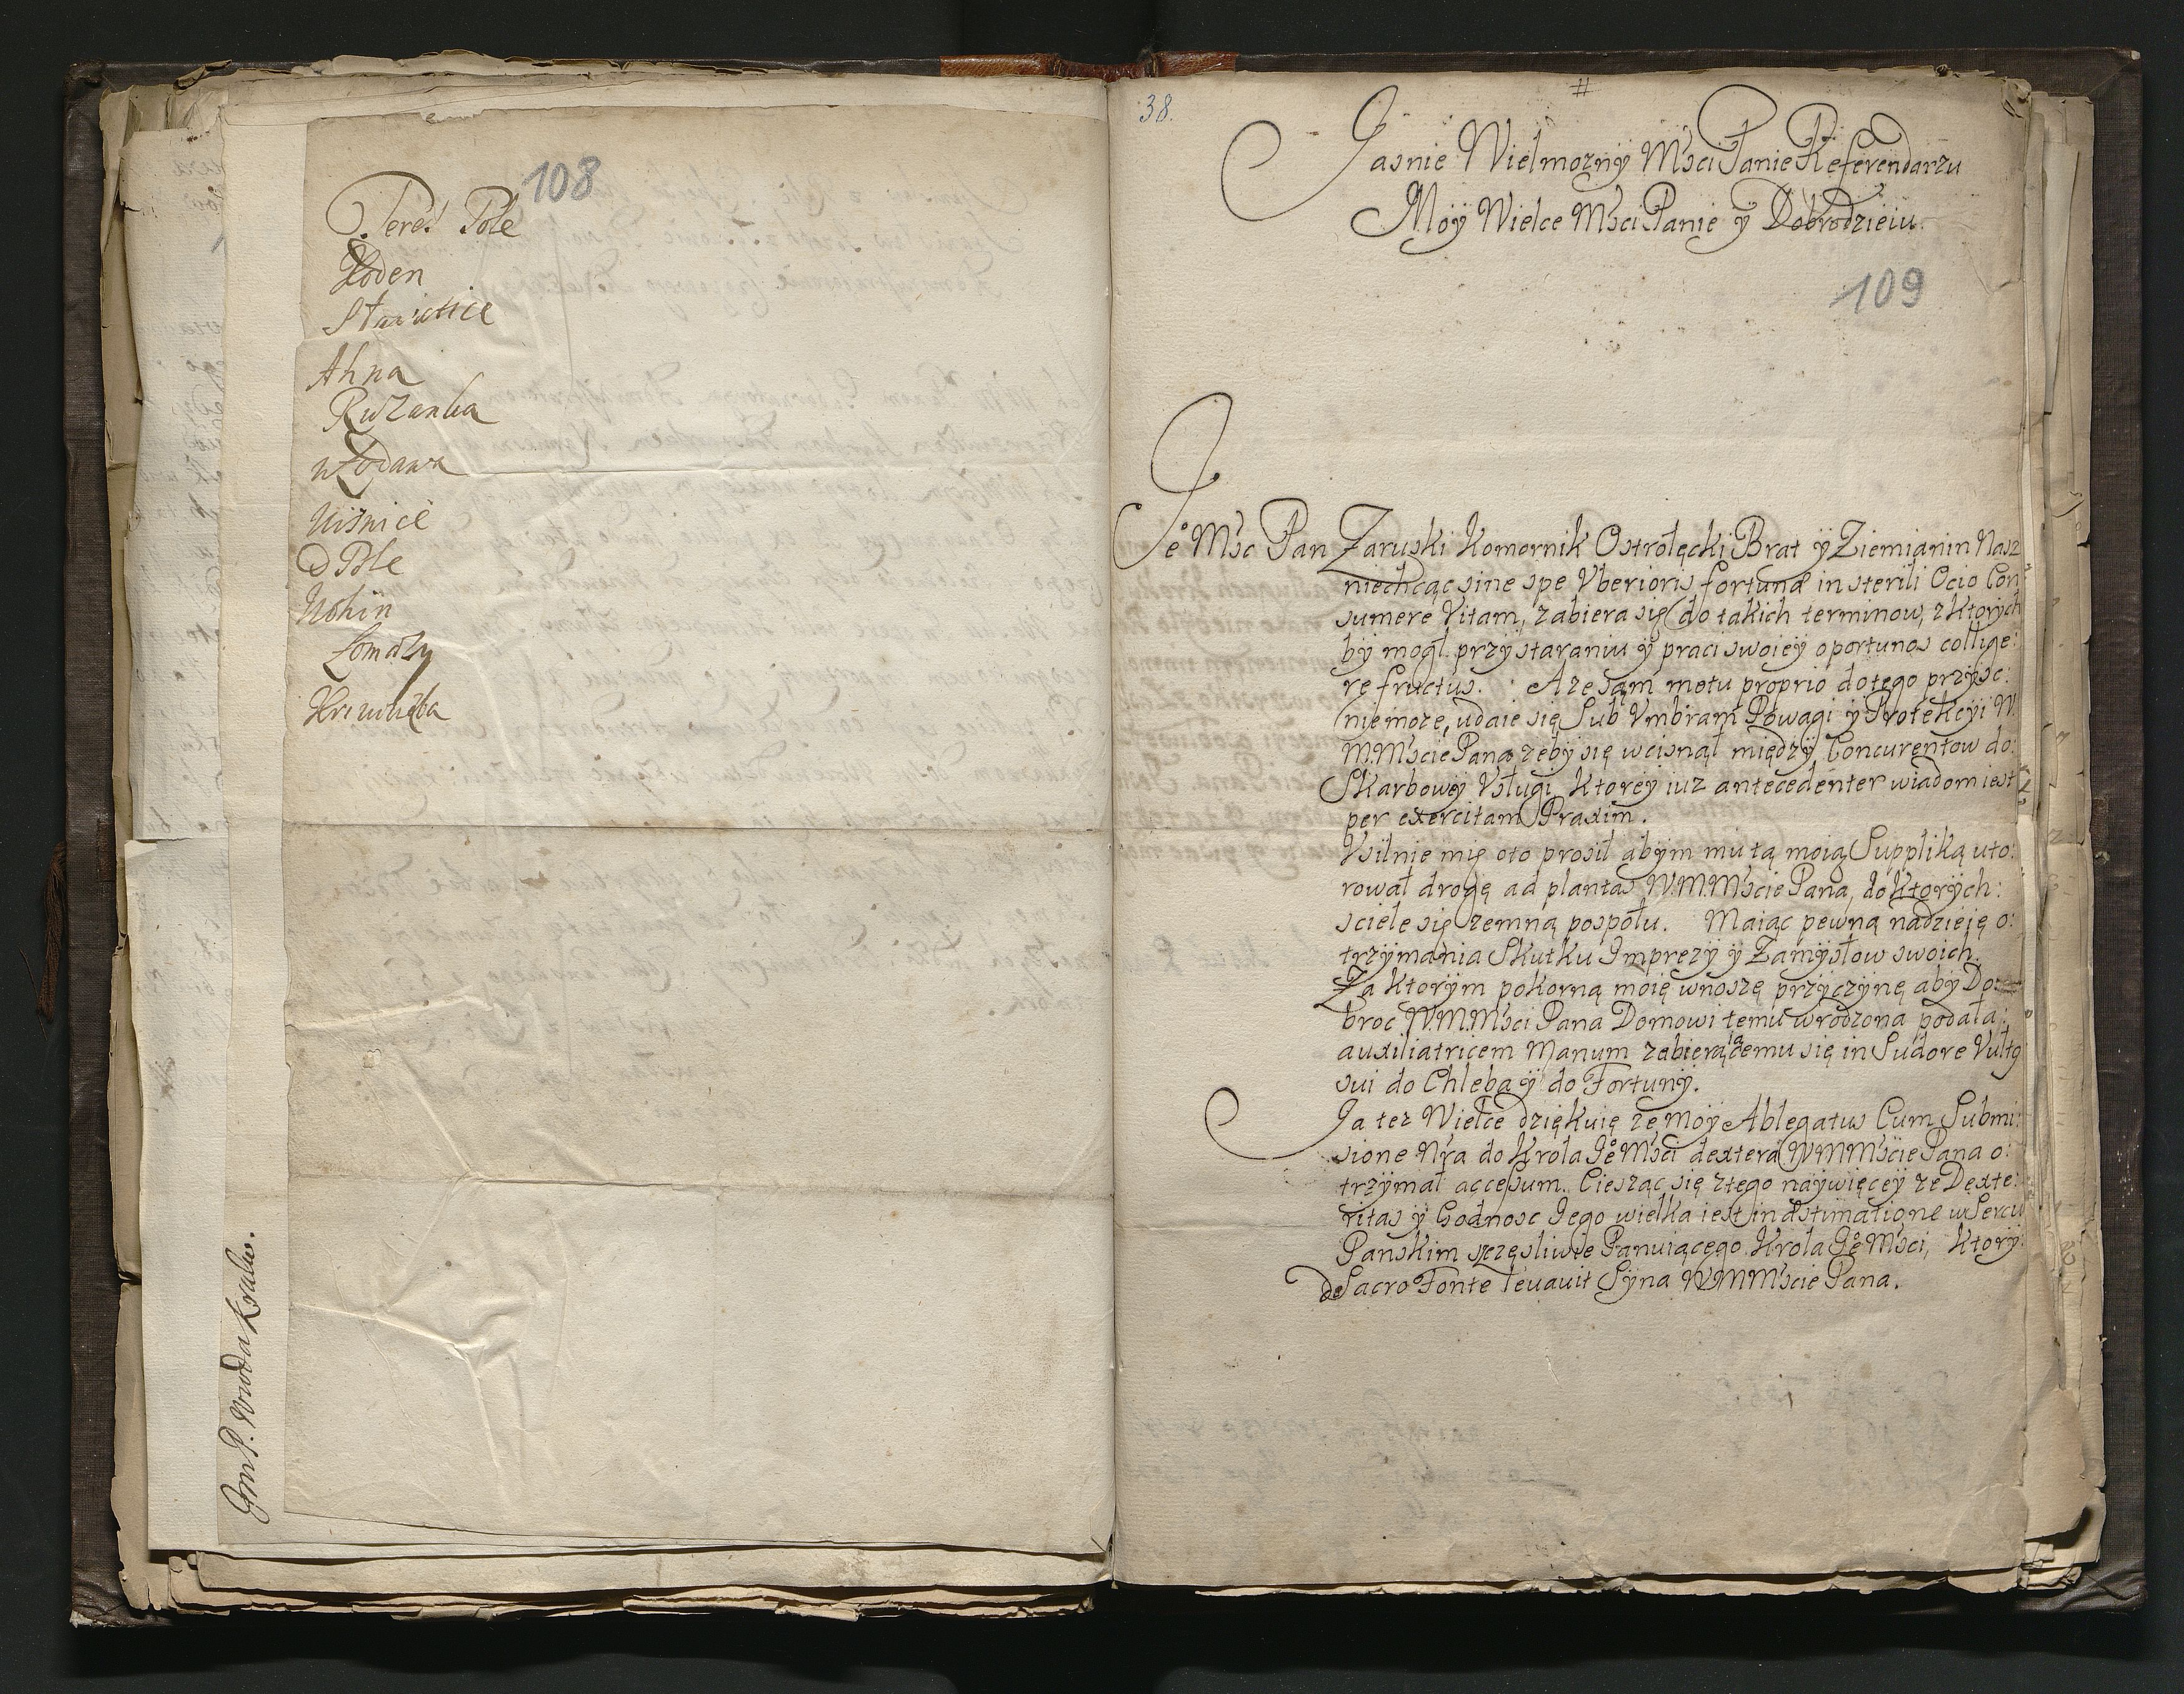 108
Teres Pole
Koden
Ahna
Ruzanka
wŁodawa
Uisnice
D Pole
Uohin
Lomazy
JmP. Wwoda Krakw.
38.
#
Jasnie Wielmozny Msci Panie Referendarzu
Moy Wielce Msci Panie y Dobrodzieiu.
109
Je Msc Pan Zaruski Komornik Ostrołęcki Brat y Ziemianin Nasz
niechcąc sine spe Vberioris fortunæ in sterili Ocio Con
sumere Vitam, zabiera się do takich terminow, z ktorych
by mogł przy staraniu y praci swoiey oportunos collige:
re fructus. A ze sąm motu proprio do tego przyisc:
nie moze, udaie się Sub Vmbram Powagi y Protekcyi W.
M.Mscie Pana zeby się wcisnął między Concurentow do:
Skarbowey Vsługi, Ktorey iuz antecedenter wiadom iest
per exercitam Praxim.
Vsilnie mię oto prosił abym mu tą moią Suppliką uto:
rował drogę ad plantas W.M.Mscie Pana, do ktorych:
sciele się zemną pospołu. Maiąc pewną nadzieię o:
trzymania Skutku Imprezy y Zamysłow swoich.
Za ktorym pokorną moię wnoszę przyczynę aby Do:
broc W.M.Msci Pana Domowi temu wrodzona podała:
auxiliatricem Manum zabieraiącemu się in Sudore Vultq
sui do Chleba y do Fortuny.
Ja tez Wielce dziękuię ze moy Ablegatus Cum Submi:
sione Nra do Krola Je Msci dexterâ WMMscie Pana o:
trzymał accessum. Ciesząc się ztego naywięcey ze Dexte:
ritas y Godnosc Jego wielka iest in æstimatione w Sercu
Panskim szczęsliwie Panuiącego Krola Je Msci, Ktory:
de Sacro Fonte levavit Syna WMMscie Pana.